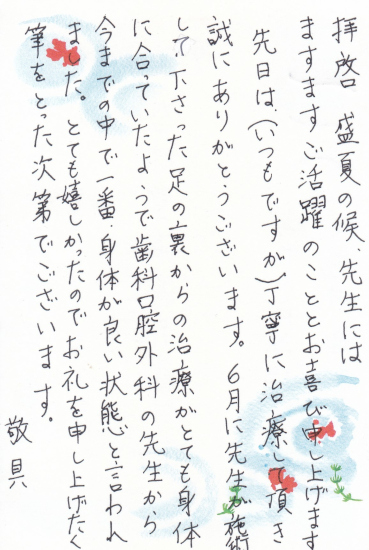 拝啓 盛夏の候、先生には
ますますご活躍のこととお喜び申し上げます
先日は、(いつもですが)丁寧に治療して頂き
誠にありがとうございます。6月に先生が施術
して下さった足の裏からの治療がとても身体
に合っていたようで歯科口腔外科の先生から
今までの中で一番、身体が良い状態と言われ
ました。とても嬉しかったのでお礼を申し上げたく
筆をとった次第でございます。
敬具